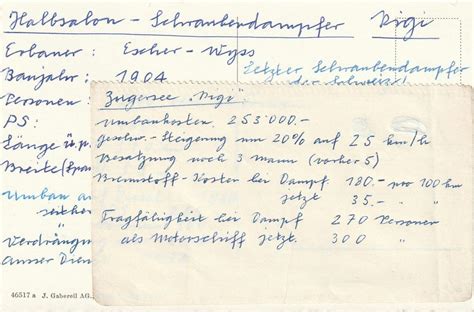 Halbsalon - Schraubendampfer Rigi
Erbauer: Escher-Wyss
Baujahr: 1904
Letzter Schraubendampfer
der Schweiz!
Personen:
PS:
Länge ü.p.
Breite (Spa
Umbau a
seither
Verdräng
Ausser Dien
46517 a J. Gaberell AG.,
Zugersee „Rigi"
Umbaukosten 253'000.-
Geschw.-Steigerung um 20% auf 25 km/h
Besatzung noch 3 Mann (vorher 5)
Brennstoff-Kosten bei Dampf 180.- pro 100 km
jetzt 35.- " "
Tragfähigkeit bei Dampf 270 Personen
als Motorschiff jetzt 300 "